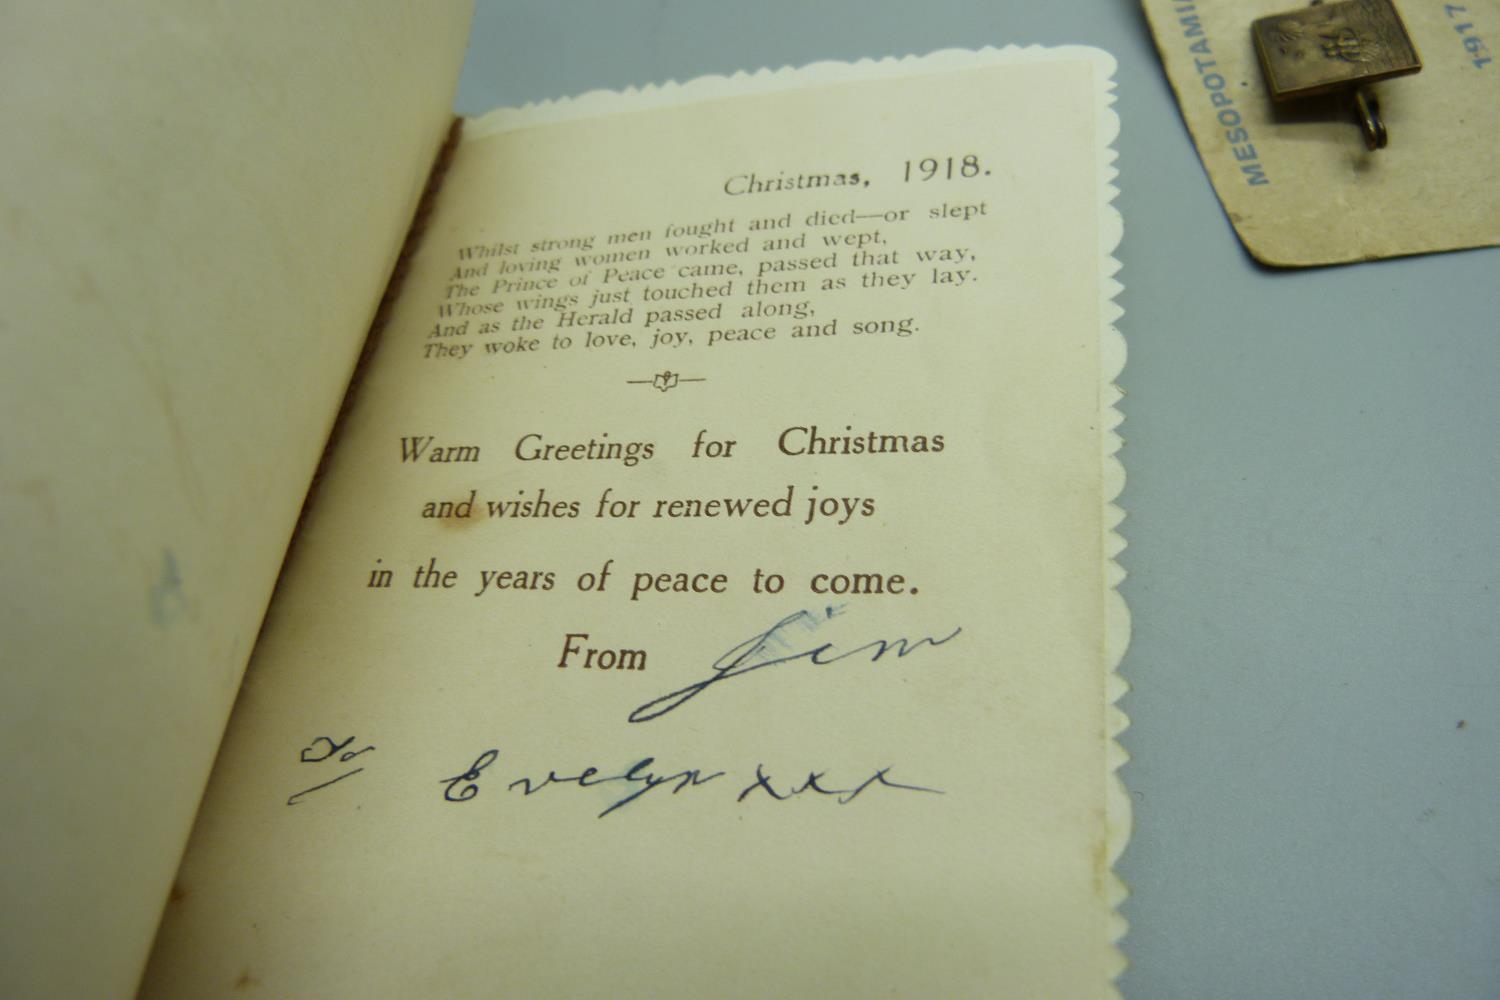 Christmas, 1918.
Whilst strong men fought and died—or slept
And loving women worked and wept,
The Prince of Peace came, passed that way,
Whose wings just touched them as they lay.
And as the Herald passed along,
They woke to love, joy, peace and song.
Warm Greetings for Christmas
and wishes for renewed joys
in the years of peace to come.
From Jim
To Evelyn xxx
MESOPOTAMIA
1917